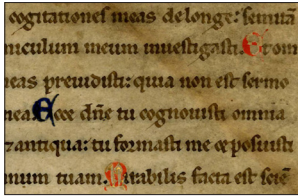 cogitationes meas de longe: semitā
niculum meum inuestigasti. Et om
meas preuidisti: quia non est sermo
mea. Ecce dn̄e tu cognouisti omnia
⁊ antiqua: tu formasti me ⁊ posuisti
manum tuam. Mirabilis facta est sciē